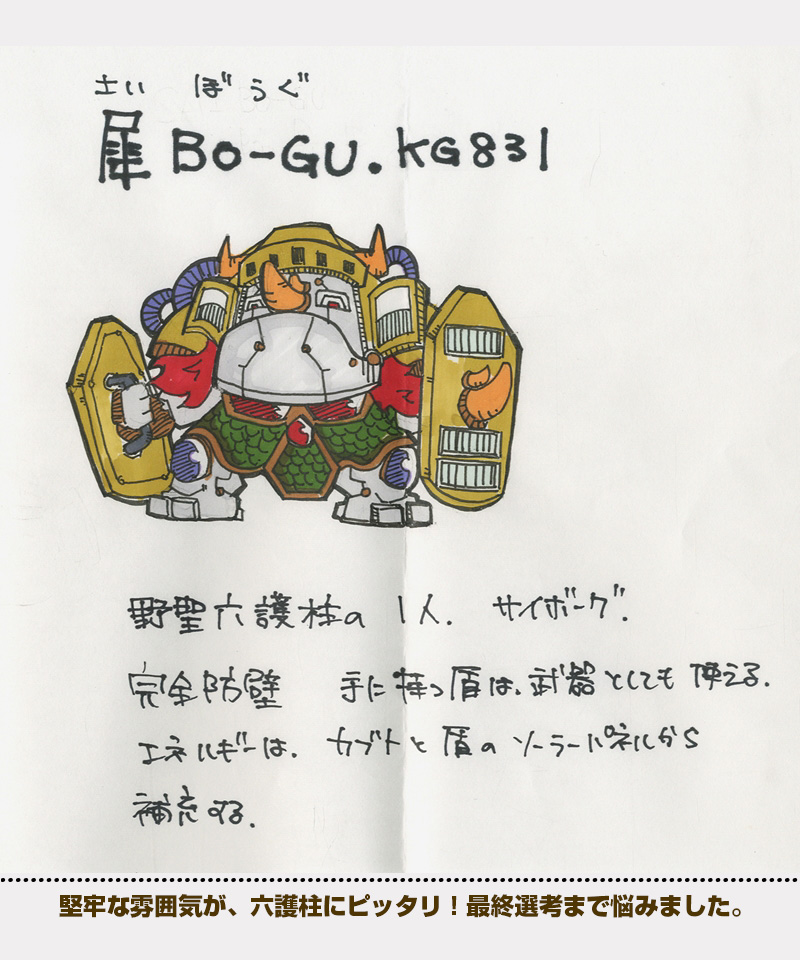 さい ぼうぐ
犀BO-GU.KG831
野聖六護柱の1人. サイボーグ.
完全防壁 手に持つ盾は、武器としても使える.
エネルギーは、カブトと盾のソーラーパネルから
補充する.
堅牢な雰囲気が、六護柱にピッタリ！最終選考まで悩みました。